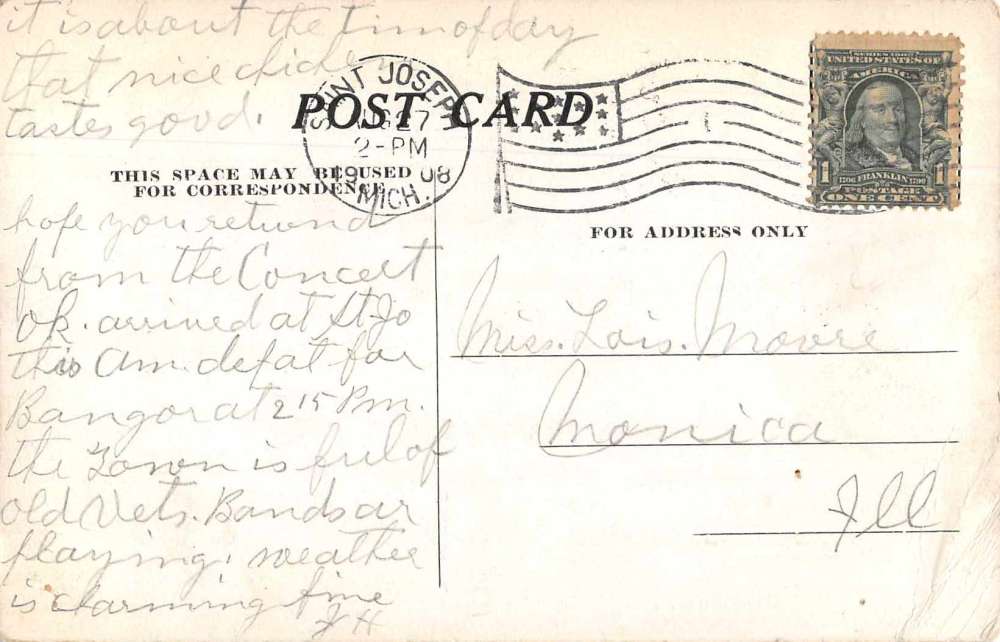 it is about the tim of day
that nice chicken
tastes good.
POST CARD
SAINT JOSEPH
AUG 27
2-PM
1908
MICH.
SERIES 1902
UNITED STATES OF
AMERICA
1 1706 FRANKLIN 1790 1
POSTAGE
ONE CENT
THIS SPACE MAY BE USED
FOR CORRESPONDENCE
FOR ADDRESS ONLY
hope you returnd
from the Concert
ok. arrived at St. Jo
this am. depat for
Bangor at 2 15 Pm.
the Town is ful of
old Vets. Bands ar
playing. weather
is charming fine
Miss. Lois. Moore
Monica
Ill